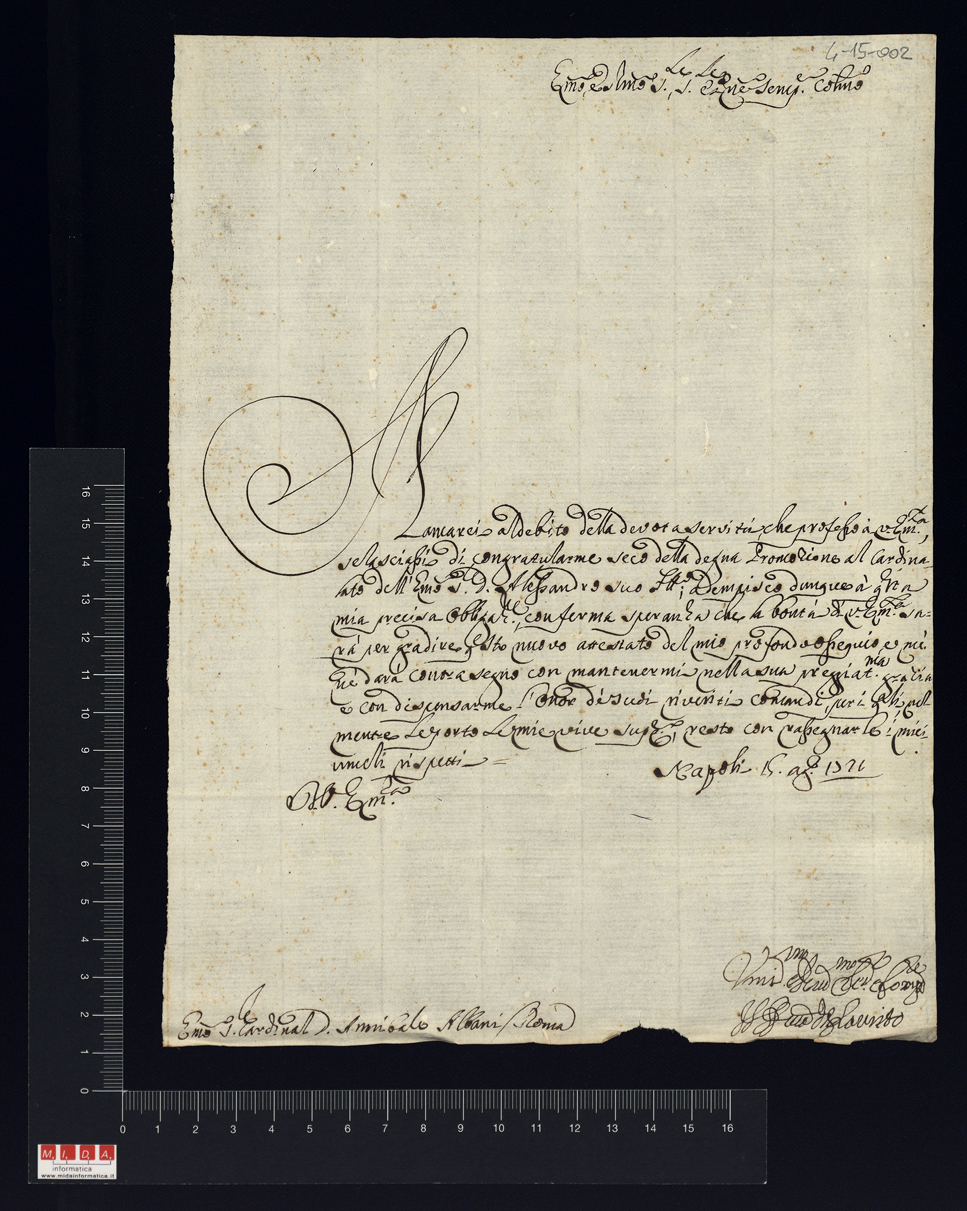 4-15-002
Emo, e Rmo S.re, S.re e Pne semp.e Colmo
Mancarei al debito della devota servitù, che professo à V. Em.za,
se lasciassi di congratularme seco della degna Promozione al Cardina-
lato dell'Emo S.r D. Alessandro suo Fllo; Adempisco dunque à qta
mia precisa obbligaz.ne, con ferma speranza che la bontà di V. Em.za sa-
rà per gradire qsto nuovo attestato del mio profondo ossequio, e me
ne darà contrasegno con mantenermi nella sua pregiat.ma grazia
e con dispensarme l'onor de suoi riveriti comandi, per i qli, nell
mentre le porto le mie vive supp.e, resto con rassegnarle i miei
umili rispetti
Napoli 15. ag.to 1721
Di V. Em.za
Emo S.r Cardinal D. Annibale Albani / Roma
16
15
14
13
12
11
10
9
8
7
6
5
4
3
2
1
0
0 1 2 3 4 5 6 7 8 9 10 11 12 13 14 15 16
M. I. D. A.
informatica
www.midainformatica.it